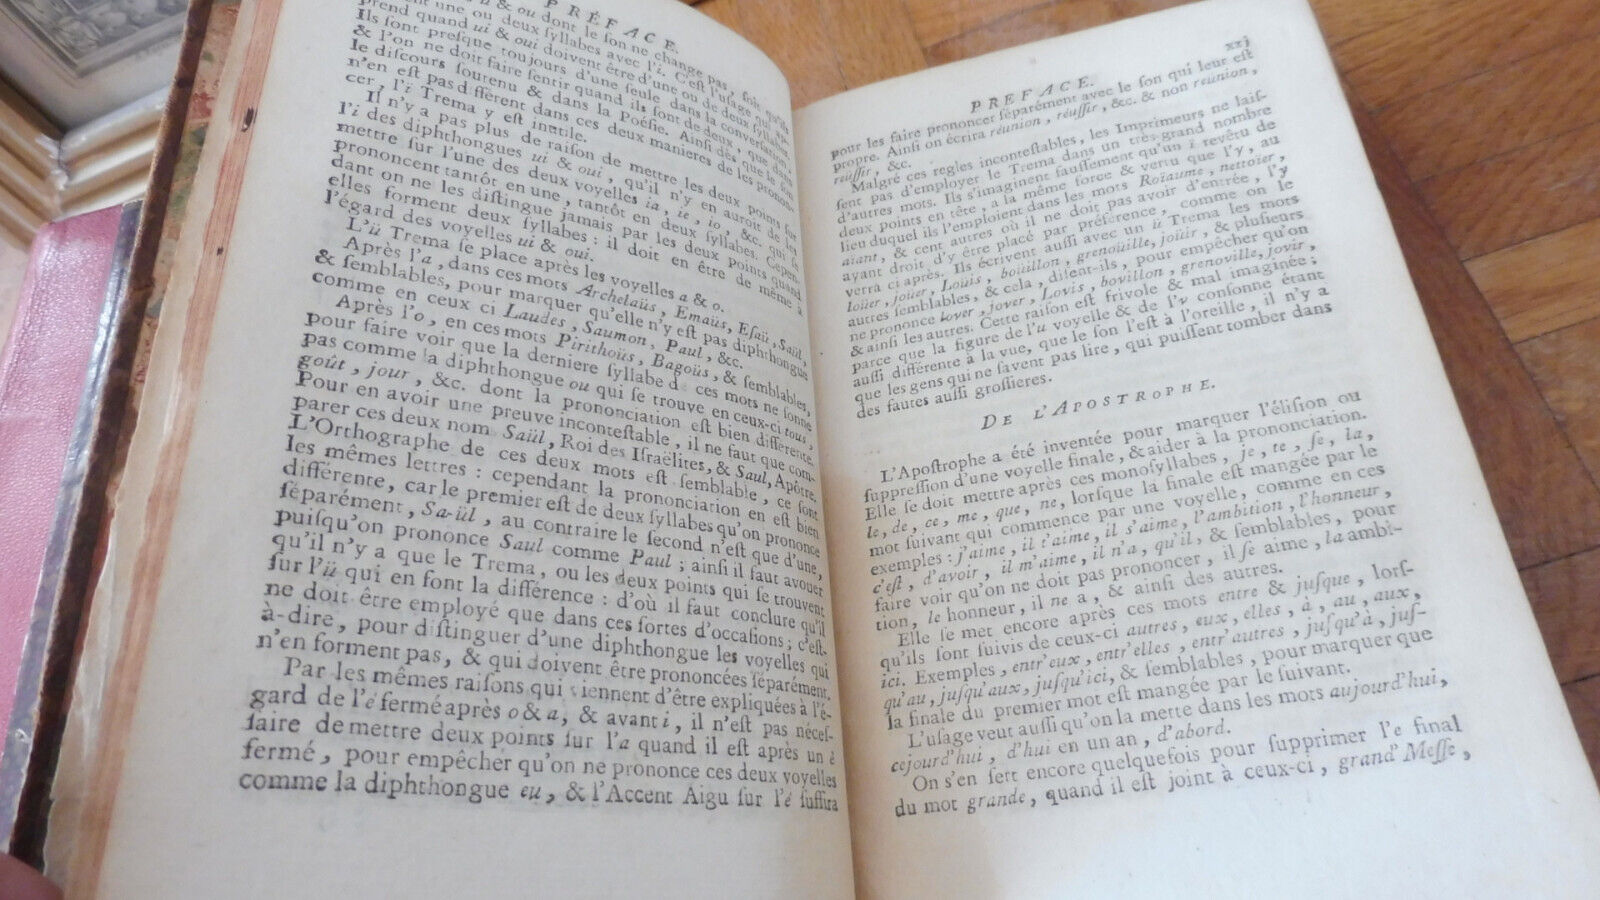 PRÉFACE.
& ou dont le son ne change pas, soit qu'ils
une ou deux syllabes avec l'i. C'est l'usage qui ap-
prend quand ui & oui doivent être d'une ou de deux syllabes.
Ils sont presque toujours d'une seule dans la conversation,
& l'on ne doit faire sentir quand ils sont de deux, que dans
le discours soutenu & dans la Poésie. Ainsi dès que le son
n'en est pas différent dans ces deux manieres de les pronon-
cer, l'i Trema y est inutile.
Il n'y a pas plus de raison de mettre les deux points sur
l'i des diphthongues ui & oui, qu'il n'y en auroit de les
mettre sur l'une des deux voyelles ia, ie, io, &c. qui se
prononcent tantôt en une, tantôt en deux syllabes. Cepen-
dant on ne les distingue jamais par les deux points, quand
elles forment deux syllabes : il doit en être de même à
l'égard des voyelles ui & oui.
L'ü Trema se place après les voyelles a & o.
Après l'a, dans ces mots Archelaüs, Emaüs, Esaü, Saül,
& semblables, pour marquer qu'elle n'y est pas diphthongue
comme en ceux ci Laudes, Saumon, Paul, &c.
Après l'o, en ces mots Pirithoüs, Bagoüs, & semblables,
pour faire voir que la derniere syllabe d ces mots ne sonne
pas comme la diphthongue ou qui se trouve en ceux-ci tous,
goût, jour, &c. dont la prononciation est bien différente.
Pour en avoir une preuve incontestable, il ne faut que com-
parer ces deux nom Saül, Roi des Israëlites, & Saul, Apôtre.
L'Orthographe de ces deux mots est semblable, ce sont
les mêmes lettres : cependant la prononciation en est bien
différente, car le premier est de deux syllabes qu'on prononce
séparément, Sa-ül, au contraire le second n'est que d'une,
puisqu'on prononce Saul comme Paul ; ainsi il faut avouer
qu'il n'y a que le Trema, ou les deux points qui se trouvent
sur l'ü qui en font la différence : d'où il faut conclure qu'il
ne doit être employé que dans ces sortes d'occasions ; c'est-
à-dire, pour distinguer d'une diphthongue les voyelles qui
n'en forment pas, & qui doivent être prononcées séparément.
Par les mêmes raisons qui viennent d'être expliquées à l'é-
gard de l'é fermé après o & a, & avant i, il n'est pas néces-
saire de mettre deux points sur l'a quand il est après un è
fermé, pour empêcher qu'on ne prononce ces deux voyelles
comme la diphthongue eu, & l'Accent Aigu sur l'é suffira
PREFACE. xxj
pour les faire prononcer séparément avec le son qui leur est
propre. Ainsi on écrira réunion, réussir, &c. & non reünion,
reüssir, &c.
Malgré ces regles incontestables, les Imprimeurs ne lais-
sent pas d'employer le Trema dans un très-grand nombre
d'autres mots. Ils s'imaginent faussement qu'un i revêtu de
deux points en tête, a la même force & vertu que l'y, au
lieu duquel ils l'emploient dans les mots Roïaume, nettoïer,
aïant, & cent autres où il ne doit pas avoir d'entrée, l'y
ayant droit d'y être placé par préférence, comme on le
verra ci après. Ils écrivent aussi avec un ü Trema les mots
loüer, joüer, Loüis, boüillon, grenoüille, joüir, & plusieurs
autres semblables, & cela, disent-ils, pour empêcher qu'on
ne prononce lover, jover, Lovis, bovillon, grenoville, jovir,
& ainsi les autres. Cette raison est frivole & mal imaginée ;
parce que la figure de l'u voyelle & de l'v consonne étant
aussi différente à la vue, que le son l'est à l'oreille, il n'y a
que les gens qui ne savent pas lire, qui puissent tomber dans
des fautes aussi grossieres.
DE L'APOSTROPHE.
L'Apostrophe a été inventée pour marquer l'élision ou
suppression d'une voyelle finale, & aider à la prononciation.
Elle se doit mettre après ces monosyllabes, je, te, se, la,
le, de, ce, me, que, ne, lorsque la finale est mangée par le
mot suivant qui commence par une voyelle, comme en ces
exemples : j'aime, il t'aime, il s'aime, l'ambition, l'honneur,
c'est, d'avoir, il m'aime, il n'a, qu'il, & semblables, pour
faire voir qu'on ne doit pas prononcer, il se aime, la ambi-
tion, le honneur, il ne a, & ainsi des autres.
Elle se met encore après ces mots entre & jusque, lors-
qu'ils sont suivis de ceux-ci autres, eux, elles, à, au, aux,
ici. Exemples, entr'eux, entr'elles, entr'autres, jusqu'à, jus-
qu'au, jusqu'aux, jusqu'ici, & semblables, pour marquer que
la finale du premier mot est mangée par le suivant.
L'usage veut aussi qu'on la mette dans les mots aujourd'hui,
cejourd'hui, d'hui en un an, d'abord.
On s'en sert encore quelquefois pour supprimer l'e final
du mot grande, quand il est joint à ceux-ci, grand'Messe,